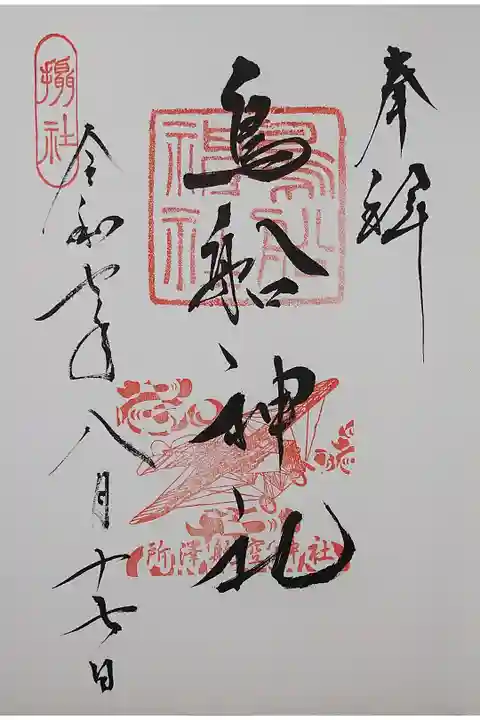 奉拝
鳥船神社
所澤航空神社
攝社
令和七年八月十七日